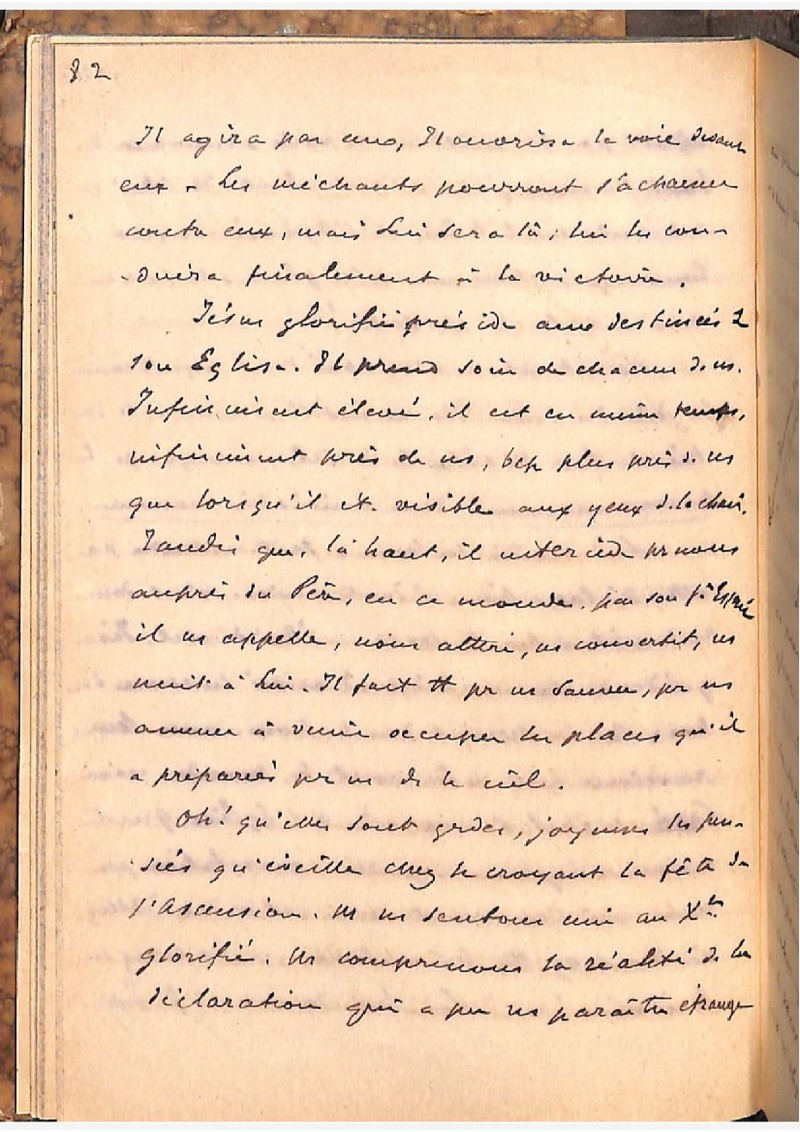 82
Il agira par eux, Il ouvrira la voie devant
eux. Les méchants pourront s'acharner
contre eux, mais Lui sera là ; lui les con-
duira finalement à la victoire.
Jésus glorifié préside aux destinées d
son Eglise. Il prend soin de chacun d. ns.
Infiniment élevé, il est en même temps,
infiniment près de ns, bcp plus près d. ns
que lorsqu'il ét. visible aux yeux d. la chair.
Tandis que, là haut, il intercède pr nous
auprès du Père, en ce monde, par son St Esprit
il ns appelle, nous attire, ns convertit, ns
unit à Lui. Il fait tt pr ns sauver, pr ns
amener à venir occuper les places qu'il
a préparées pr ns ds le ciel.
Oh! qu'elles sont grdes, joyeuses les pen-
sées qu'éveille chez le croyant la fête de
l'Ascension. Ns ns sentons uni au Xst
glorifié. Ns comprenons la réalité de la
déclaration qui a pu ns paraître étrange